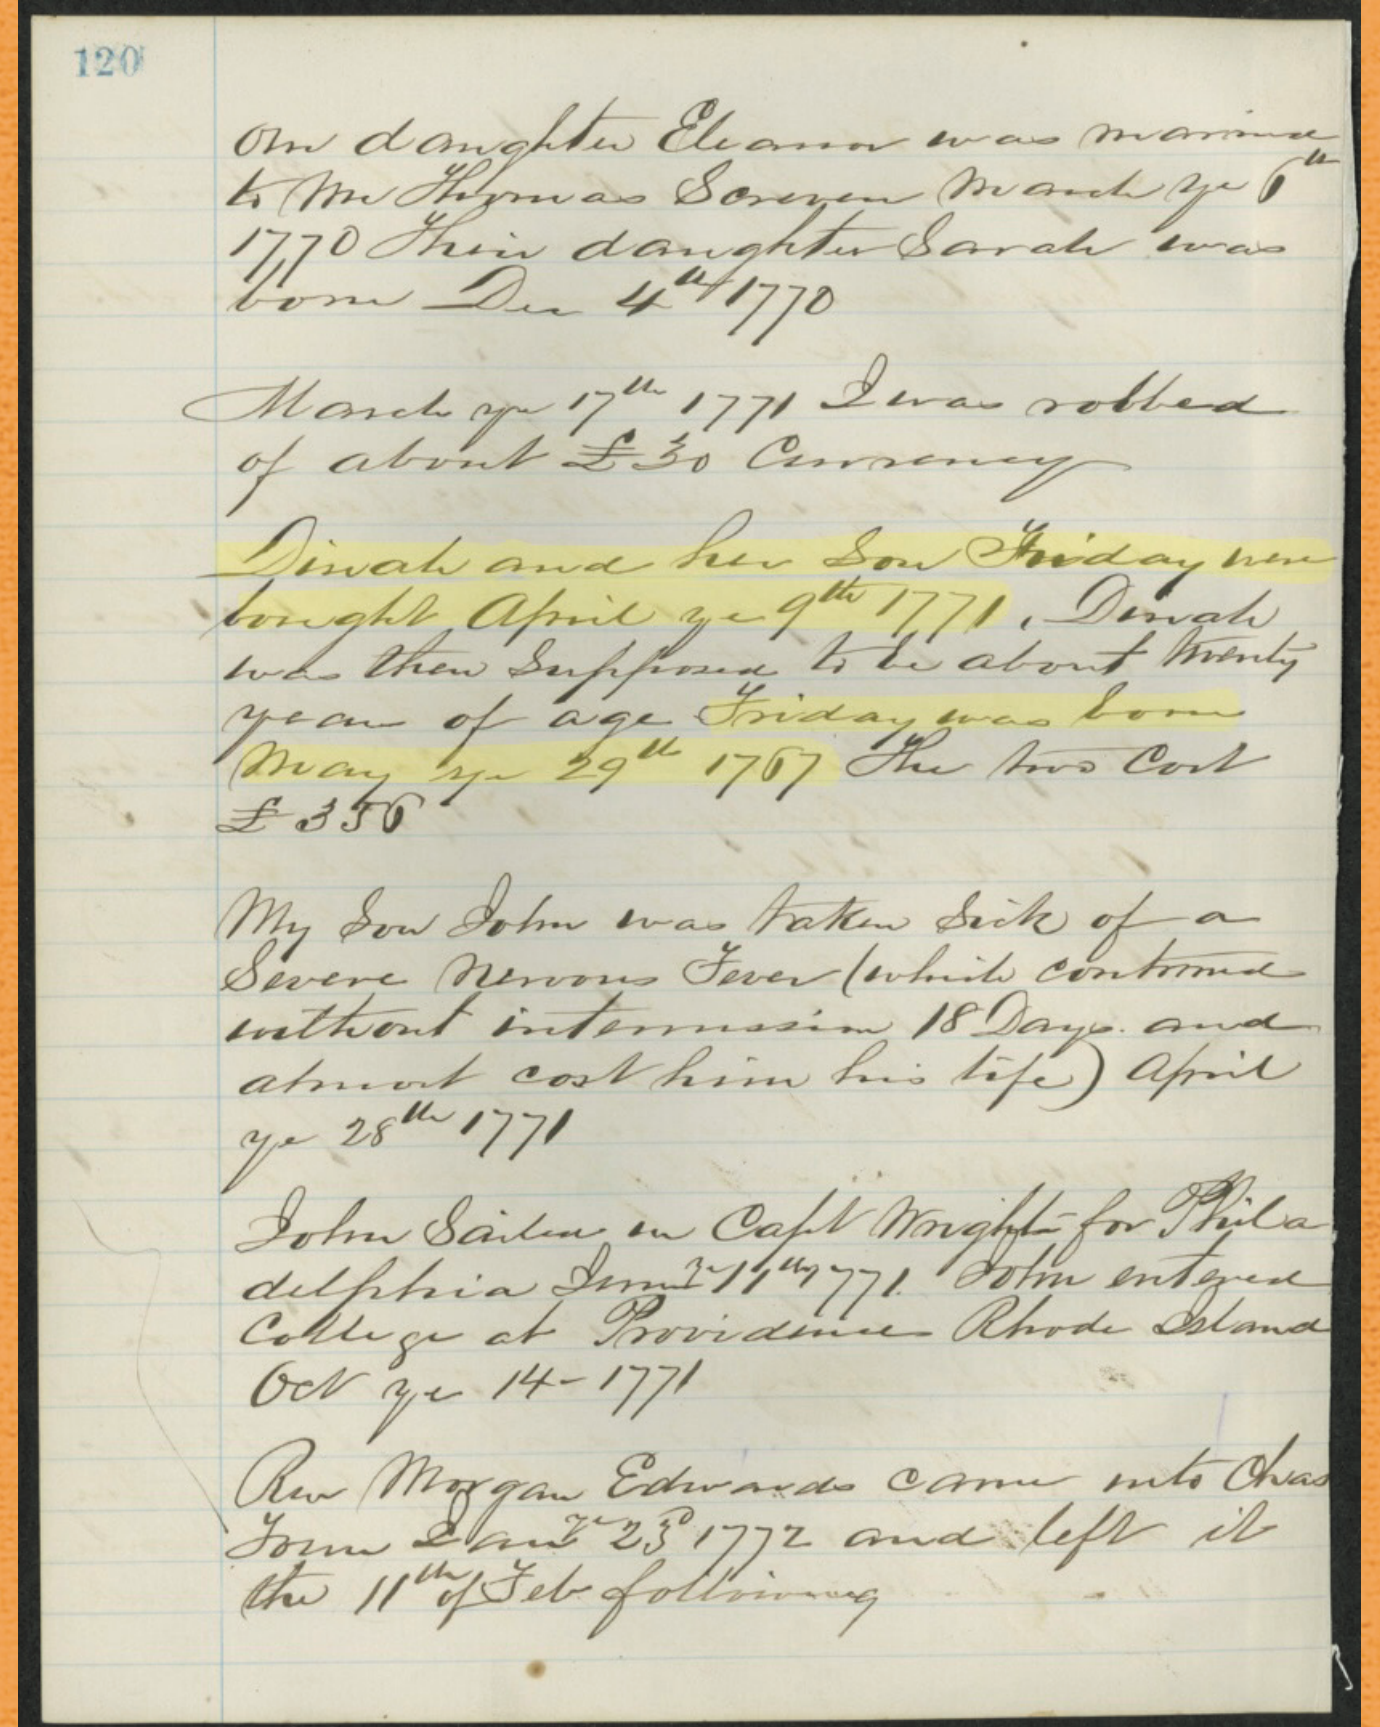 120
Our daughter Eleanor was married
to Mr Thomas Screven March ye 6th
1770 Their daughter Sarah was
born Dec 4th 1770
March ye 17th 1771 I was robbed
of about £30 Currency
Dinah and her Son Friday were
bought April ye 9th 1771, Dinah
was then Supposed to be about twenty
years of age Friday was born
May ye 29th 1767 The two Cost
£ 356
My Son John was taken Sick of a
Severe Nervous Fever (which continued
without intermission 18 Days and
almost cost him his life) April
ye 28th 1771
John Sailed in Capt Wright for Phila
delphia June ye 11th 1771. John entered
College at Providence Rhode Island
Oct ye 14- 1771
Rev Morgan Edwards came into Chas
Town Jan ye 23d 1772 and left it
the 11th of Feb following